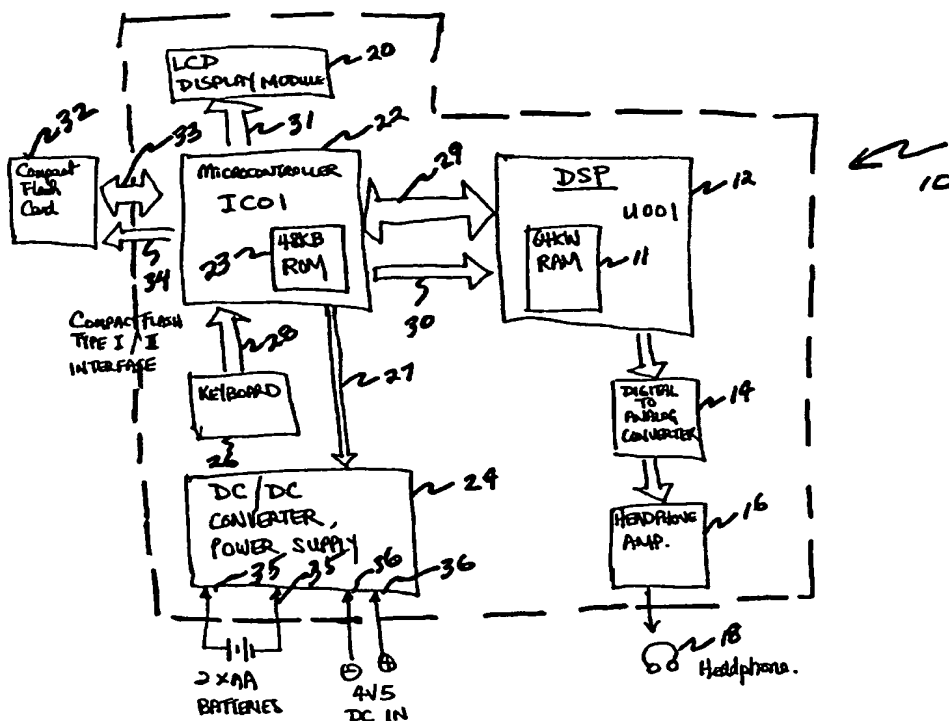 LCD
DISPLAY MODULE
20
31
32
33
22
Compact
Flash
Card
MICROCONTROLLER
IC01
29
DSP
U001
12
10
23
48KB
ROM
64KW
RAM
11
34
30
COMPACT FLASH
TYPE I / II
INTERFACE
28
27
KEYBOARD
26
DIGITAL
TO
ANALOG
CONVERTER
14
DC/DC
CONVERTER,
POWER SUPPLY
24
HEADPHONE
AMP.
16
35
35
36
36
18
Headphone.
2 x AA
BATTERIES
4V5
DC IN